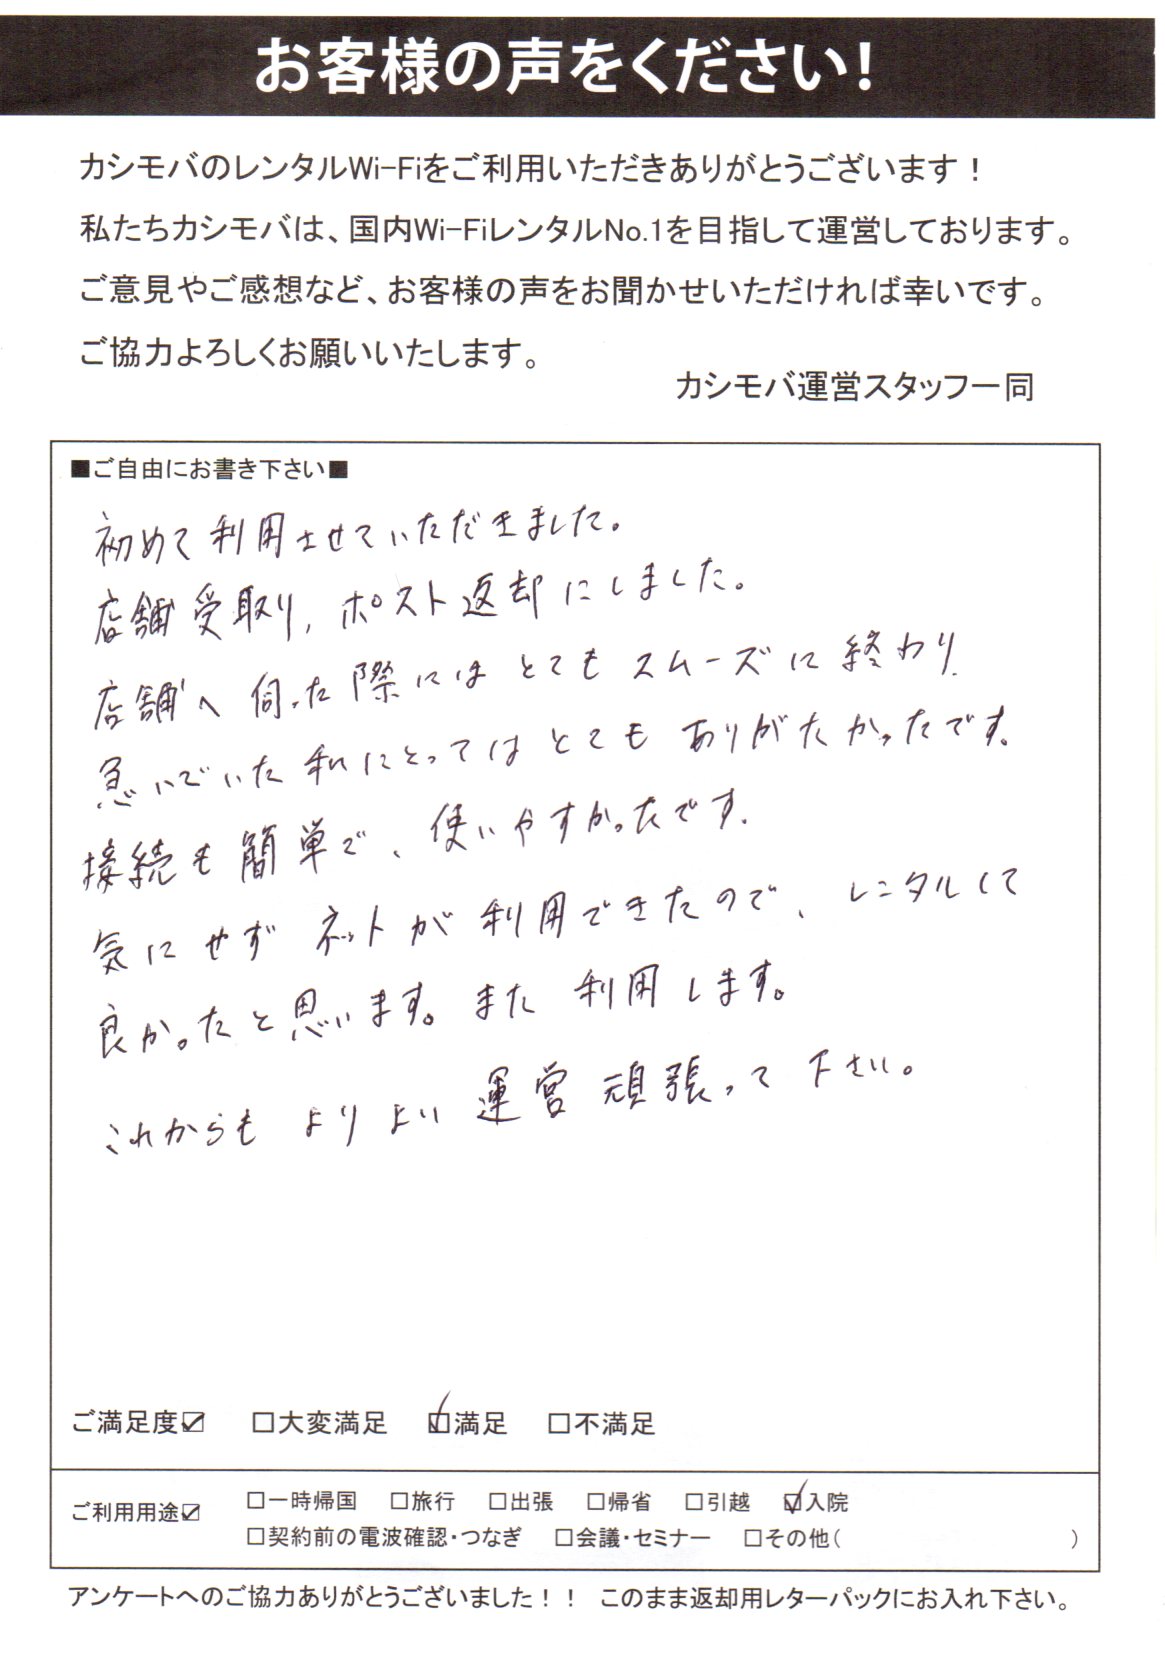 お客様の声をください！
カシモバのレンタルWi-Fiをご利用いただきありがとうございます！
私たちカシモバは、国内Wi-FiレンタルNo.1を目指して運営しております。
ご意見やご感想など、お客様の声をお聞かせいただければ幸いです。
ご協力よろしくお願いいたします。
カシモバ運営スタッフ一同
■ご自由にお書き下さい■
初めて利用させていただきました。
店舗受取り，ポスト返却にしました。
店舗へ伺った際にはとてもスムーズに終わり、
急いでいた私にとってはとてもありがたかったです。
接続も簡単で、使いやすかったです。
気にせずネットが利用できたので、レンタルして
良かったと思います。また利用します。
これからもよりよい運営頑張って下さい。
ご満足度☑ □大変満足 ☑満足 □不満足
ご利用用途☑ □一時帰国 □旅行 □出張 □帰省 □引越 ☑入院
□契約前の電波確認・つなぎ □会議・セミナー □その他( )
アンケートへのご協力ありがとうございました！！ このまま返却用レターパックにお入れ下さい。